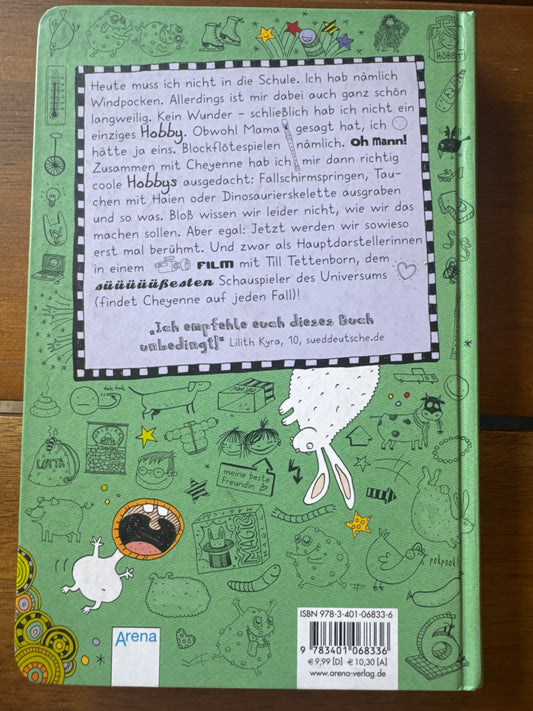 Heute muss ich nicht in die Schule. Ich hab nämlich
Windpocken. Allerdings ist mir dabei auch ganz schön
langweilig. Kein Wunder – schließlich hab ich nicht ein
einziges Hobby. Obwohl Mama gesagt hat, ich
hätte ja eins. Blockflötespielen nämlich. Oh Mann!
Zusammen mit Cheyenne hab ich mir dann richtig
coole Hobbys ausgedacht: Fallschirmspringen, Tau-
chen mit Haien oder Dinosaurierskelette ausgraben
und so was. Bloß wissen wir leider nicht, wie wir das
machen sollen. Aber egal: Jetzt werden wir sowieso
erst mal berühmt. Und zwar als Hauptdarstellerinnen
in einem FILM mit Till Tettenborn, dem
süüüüüüßesten Schauspieler des Universums
(findet Cheyenne auf jeden Fall)!
„Ich empfehle euch dieses Buch
unbedingt!" Lilith Kyra, 10, sueddeutsche.de
tok tok
LOTTA
meine beste
Freundin
MAGIC
Arena
ISBN 978-3-401-06833-6
9 783401 068336
€ 9,99 [D] € 10,30 [A]
www.arena-verlag.de